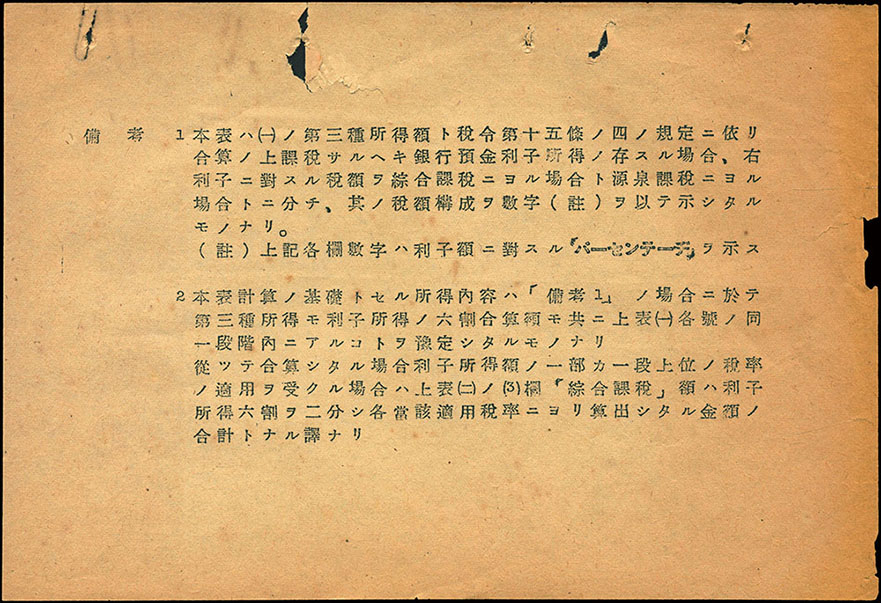 備考 1 本表ハ㈠ノ第三種所得額ト稅令第十五條ノ四ノ規定ニ依リ
合算ノ上課稅サルヘキ銀行預金利子所得ノ存スル場合、右
利子ニ對スル稅額ヲ綜合課稅ニヨル場合ト源泉課稅ニヨル
場合トニ分チ、其ノ稅額構成ヲ數字(註)ヲ以テ示シタル
モノナリ。
(註)上記各欄數字ハ利子額ニ對スル「パーセンテーヂ」ヲ示ス
2 本表計算ノ基礎トセル所得內容ハ「備考1」ノ場合ニ於テ
第三種所得モ利子所得ノ六割合算額モ共ニ上表㈠各號ノ同
一段階內ニアルコトヲ豫定シタルモノナリ
從ツテ合算シタル場合利子所得額ノ一部カ一段上位ノ稅率
ノ適用ヲ受クル場合ハ上表㈡ノ⑶欄「綜合課稅」額ハ利子
所得六割ヲ二分シ各當該適用稅率ニヨリ算出シタル金額ノ
合計トナル譯ナリ